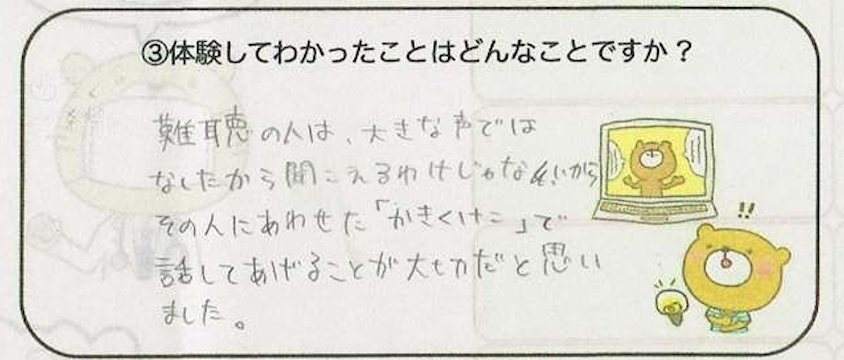 ③体験してわかったことはどんなことですか？
難聴の人は、大きな声では
なしたから聞こえるわけじゃないから
その人にあわせた「かきくけこ」で
話してあげることが大切だと思い
ました。
!!